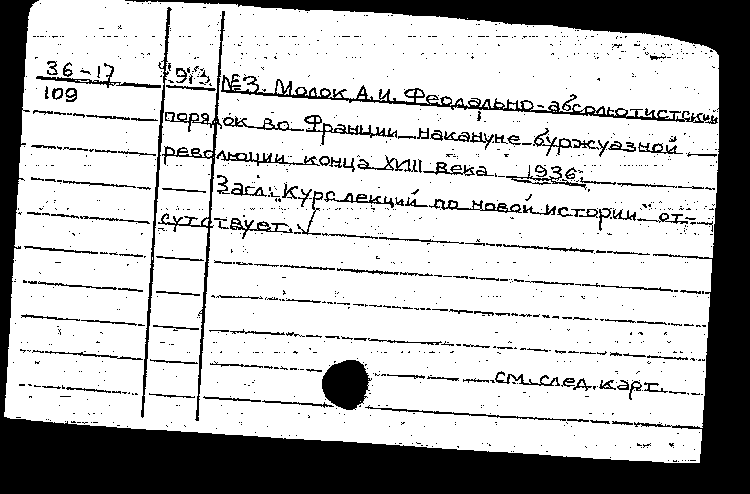 36-17
109
№3. Молок, А.И. Феодально-абсолютистский
порядок во Франции накануне буржуазной
революции конца XVIII века. 1936.
Загл: "Курс лекций по новой истории" от-
сутствует. √
см. след. карт.